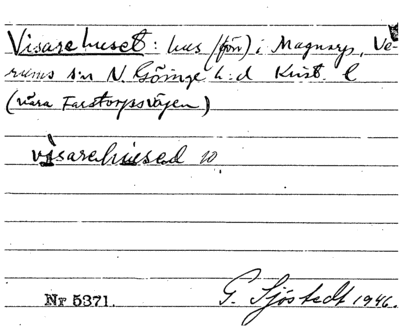 Visarehuset: hus (förr) i Magnarp, Ve-
rums s:n N. Göinge h:d Krist. l
(nära Farstorpsvägen)
visarehused
Nr 5371. G. Sjöstedt 1946.